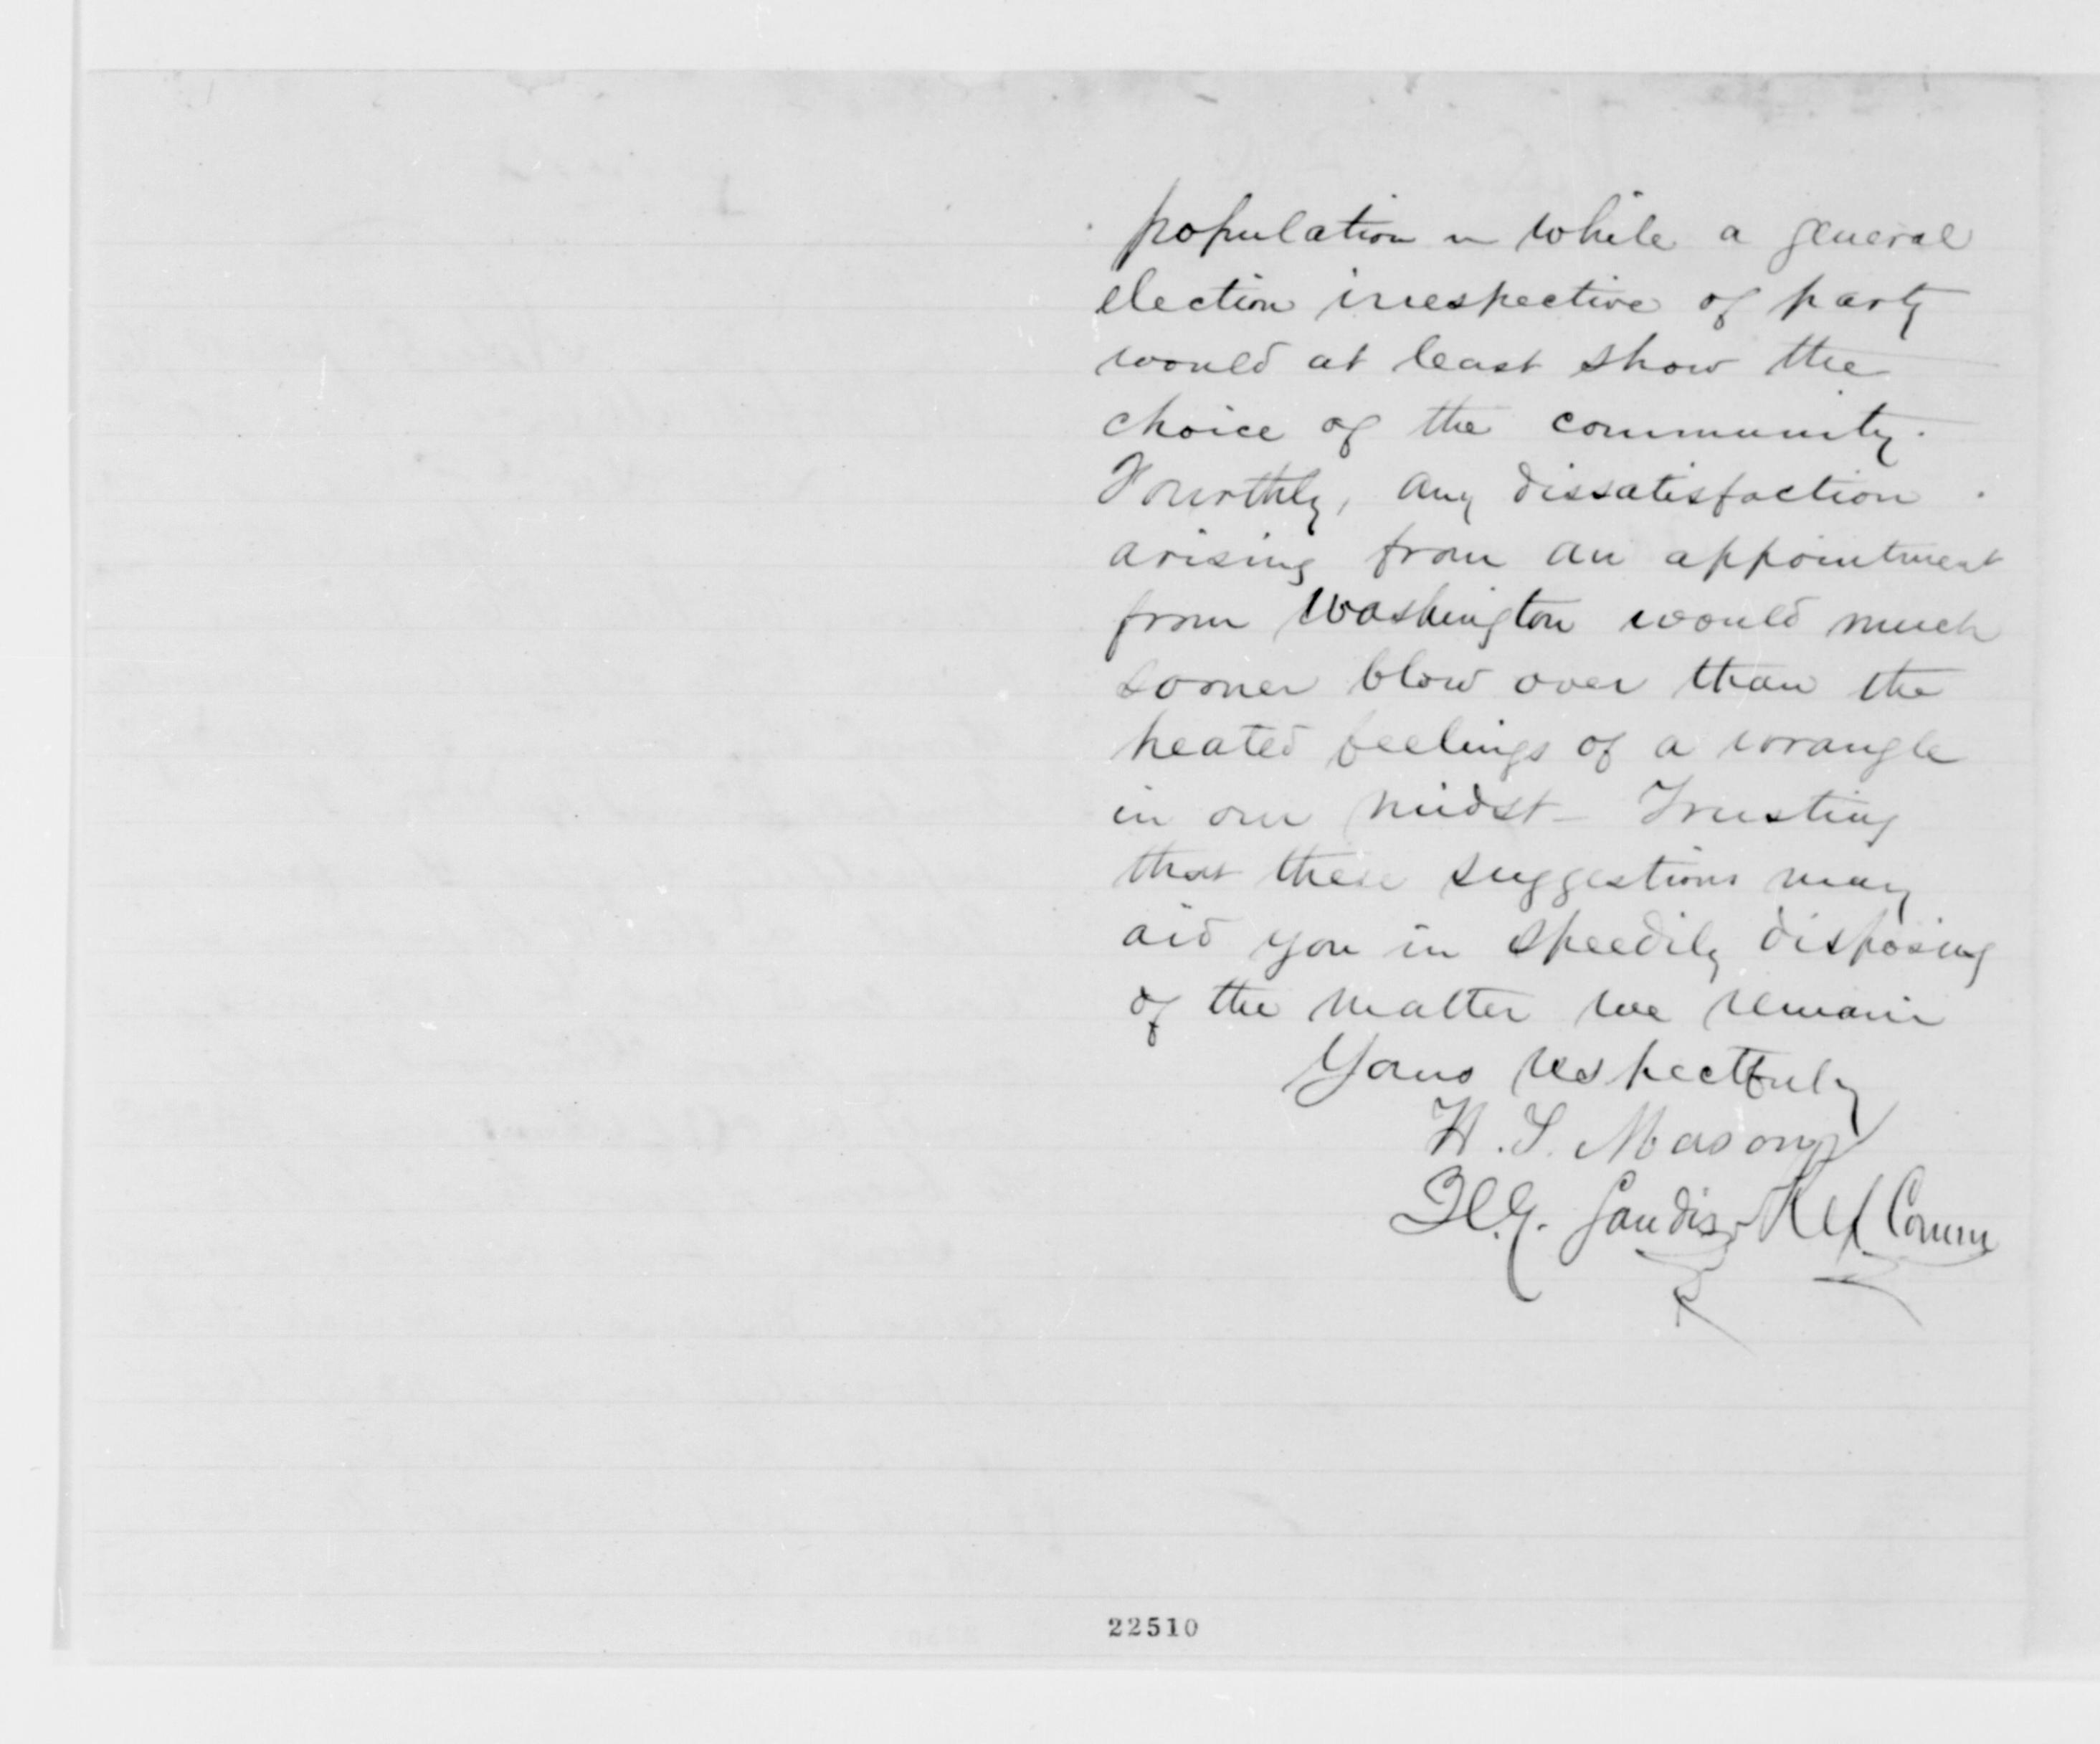 population — while a general
election irrespective of party
would at least show the
choice of the community.
Fourthly, any dissatisfaction
arising from an appointment
from Washington would much
sooner blow over than the
heated feelings of a wrangle
in our midst — Trusting
that these suggestions may
aid you in speedily disposing
of the matter we remain
Yours respectfully
H. S. Mason
Landis Comm
22510